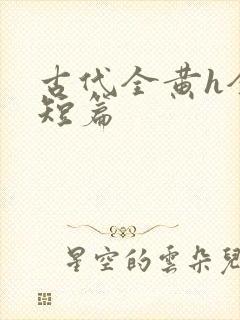 古代全黄h全
短篇
星空的雲朵兒